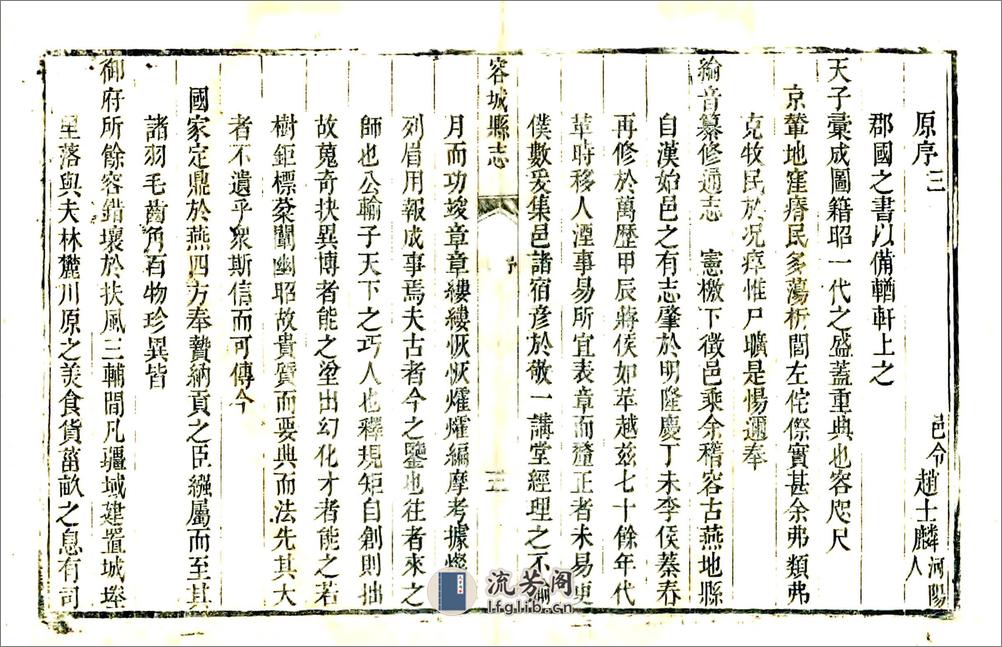 原序三
邑令趙士麟河陽人
郡國之書以備輶軒上之
天子彙成圖籍昭一代之盛蓋重典也容咫尺
京輦地窪瘠民多蕩析閭左侘傺實甚余弗類弗
克牧民於况瘁惟尸曠是惕邇奉
綸音纂修通志 憲檄下徵邑乘余稽容古燕地縣
自漢始邑之有志肇於明隆慶丁未李侯蓁春
再修於萬歷甲辰蔣侯如苹越玆七十餘年代
革時移人湮事易所宜表章而釐正者未易更
僕數爰集邑諸宿彥於敬一講堂經理之不
月而功竣章章縷縷恢恢燿燿編摩考據燦
列眉用報成事焉夫古者今之鑒也往者來之
師也公輸子天下之巧人也釋規矩自創則拙
故蒐奇抉異博者能之塗出幻化才者能之若
樹鉅標棻闡幽昭故貴質而要典而法先其大
者不遺乎衆斯信而可傳今
國家定鼎於燕四方奉贄納貢之臣繈屬而至其
諸羽毛齒角百物珍異皆
御府所餘容錯壤於扶風三輔間凡疆域建置城
里落與夫林麓川原之美食貨菑畝之息有司
容城縣志
序
三
流芳阁
lfglib.cn